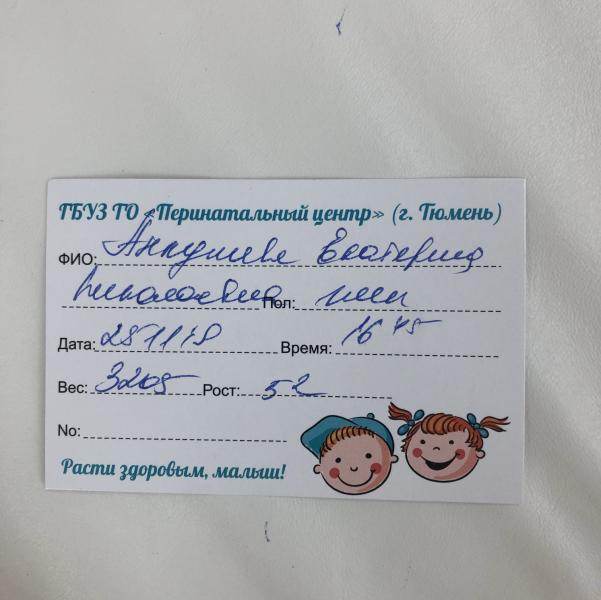 ГБУЗ ТО «Перинатальный центр» (г. Тюмень)
ФИО: Екатерина
Николаевна Пол: жен
Дата: 251118 Время: 16 45
Вес: 3205 Рост: 52
No:
Расти здоровым, малыш!